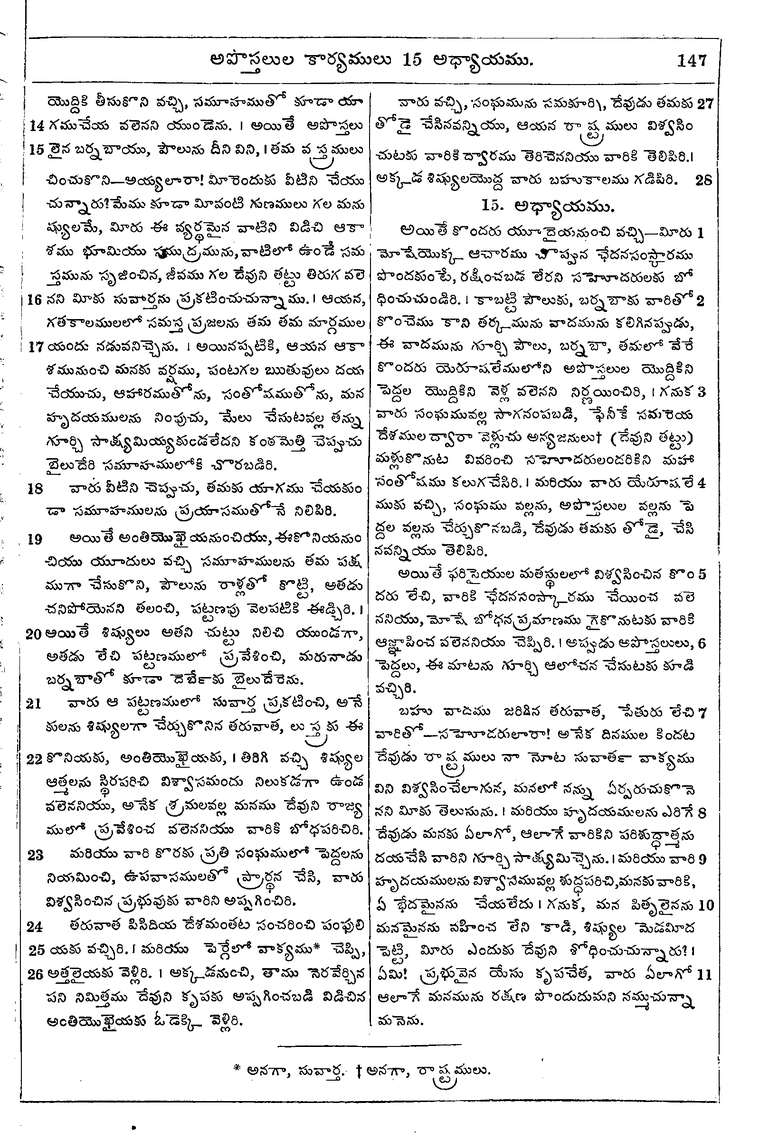 అపొస్తలుల కార్యములు 15 అధ్యాయము.
147
యొద్దికి తీసుకొని వచ్చి, సమూహముతో కూడా యా
14 గముచేయ వలెనని యుండెను. । అయితే అపొస్తలు
15 లైన బర్నబాయు, పౌలును దీని విని, । తమ వస్త్రములు
చించుకొని—అయ్యలారా! మీరెందుకు వీటిని చేయు
చున్నారు? మేము కూడా మీవంటి గుణములు గల మను
ష్యులమే, మీరు ఈ వ్యర్థమైన వాటిని విడిచి ఆకా
శము భూమియు సముద్రమును, వాటిలో ఉండే సమ
స్తమును సృజించిన, జీవము గల దేవుని తట్టు తిరుగ వలె
16 నని మీకు సువార్తను ప్రకటించుచున్నాము. । ఆయన,
గతకాలములలో సమస్త ప్రజలను తమ తమ మార్గముల
17 యందు నడువనిచ్చెను. । అయినప్పటికి, ఆయన ఆకా
శమునుంచి మనకు వర్షము, పంటగల ఋతువులు దయ
చేయుచు, ఆహారముతోను, సంతోషముతోను, మన
హృదయములను నింపుచు, మేలు చేసుటవల్ల తన్ను
గూర్చి సాక్ష్యమియ్యకుండలేదని కంఠమెత్తి చెప్పుచు
బైలుదేరి సమూహములోకి చొరబడిరి.
18 వారు వీటిని చెప్పుచు, తమకు యాగము చేయకుం
డా సమూహములను ప్రయాసముతోనే నిలిపిరి.
19 అయితే అంతియొఖైయనుంచియు, ఈకొనియనుం
చియు యూదులు వచ్చి సమూహములను తమ పక్ష
ముగా చేసుకొని, పౌలును రాళ్లతో కొట్టి, అతడు
చనిపోయెనని తలంచి, పట్టణపు వెలపటికి ఈడ్చిరి. ।
20 అయితే శిష్యులు అతని చుట్టు నిలిచి యుండగా,
అతడు లేచి పట్టణములో ప్రవేశించి, మరునాడు
బర్నబాతో కూడా దెర్బెకు బైలుదేరెను.
21 వారు ఆ పట్టణములో సువార్త ప్రకటించి, అనే
కులను శిష్యులగా చేర్చుకొనిన తరువాత, లుస్త్రకు ఈ
22 కొనియకు, అంతియొఖైయకు, । తిరిగి వచ్చి శిష్యుల
ఆత్మలను స్థిరపరిచి విశ్వాసమందు నిలుకడగా ఉండ
వలెననియు, అనేక శ్రమలవల్ల మనము దేవుని రాజ్య
ములో ప్రవేశించ వలెననియు వారికి బోధపరిచిరి.
23 మరియు వారి కొరకు ప్రతి సంఘములో పెద్దలను
నియమించి, ఉపవాసములతో ప్రార్థన చేసి, వారు
విశ్వసించిన ప్రభువుకు వారిని అప్పగించిరి.
24 తరువాత పిసిదియ దేశమంతట సంచరించి పంఫులి
25 యకు వచ్చిరి. । మరియు పెర్గేలో వాక్యము* చెప్పి,
26 అత్తలైయకు వెళ్లిరి. । అక్కడనుంచి, తాము నెరవేర్చిన
పని నిమిత్తము దేవుని కృపకు అప్పగించబడి విడిచిన
అంతియొఖైయకు ఓడెక్కి వెళ్లిరి.
వారు వచ్చి, సంఘమును సమకూర్చి, దేవుడు తమకు 27
తోడై చేసినవన్నియు, ఆయన రాష్ట్రములు విశ్వసిం
చుటకు వారికి ద్వారము తెరిచెననియు వారికి తెలిపిరి. ।
అక్కడ శిష్యులయొద్ద వారు బహుకాలము గడిపిరి. 28
15. అధ్యాయము.
అయితే కొందరు యూదైయనుంచి వచ్చి—మీరు 1
మోషేయొక్క ఆచారము చొప్పున ఛేదనసంస్కారము
పొందకుంటే, రక్షించబడ లేరని సహోదరులకు బో
ధించుచుండిరి. । కాబట్టి పౌలుకు, బర్నబాకు వారితో 2
కొంచెము కాని తర్కమును వాదమును కలిగినప్పుడు,
ఈ వాదమును గూర్చి పౌలు, బర్నబా, తమలో వేరే
కొందరు యెరూషలేములోని అపొస్తలుల యొద్దికిని
పెద్దల యొద్దికిని వెళ్ల వలెనని నిర్ణయించిరి, । గనుక 3
వారు సంఘమువల్ల సాగనంపబడి, ఫేనీకే సమరియ
దేశముల ద్వారా వెళ్లుచు అన్యజనులు† (దేవుని తట్టు)
మళ్లుకొనుట వివరించి సహోదరులందరికిని మహా
సంతోషము కలుగచేసిరి. । మరియు వారు యేరూషలే 4
ముకు వచ్చి, సంఘము వల్లను, అపొస్తలుల వల్లను పె
ద్దల వల్లను చేర్చుకొనబడి, దేవుడు తమకు తోడై, చేసి
నవన్నియు తెలిపిరి.
అయితే ఫరిసైయుల మతస్థులలో విశ్వసించిన కొం 5
దరు లేచి, వారికి ఛేదనసంస్కారము చేయించ వలె
ననియు, మోషే బోధనప్రమాణము గైకొనుటకు వారికి
ఆజ్ఞాపించ వలెననియు చెప్పిరి. । అప్పుడు అపొస్తలులు, 6
పెద్దలు, ఈ మాటను గూర్చి ఆలోచన చేసుటకు కూడి
వచ్చిరి.
బహు వాదము జరిఖిన తరువాత, పేతురు లేచి 7
వారితో—సహోదరులారా! అనేక దినముల కిందట
దేవుడు రాష్ట్రములు నా నోట సువార్త వాక్యము
విని విశ్వసించేలాగున, మనలో నన్ను ఏర్పరుచుకొనె
నని మీకు తెలుసును. । మరియు హృదయములను ఎరిగే 8
దేవుడు మనకు ఏలాగో, ఆలాగే వారికిని పరిశుద్ధాత్మను
దయచేసి వారిని గూర్చి సాక్ష్యమిచ్చెను. । మరియు వారి 9
హృదయములను విశ్వాసమువల్ల శుద్ధపరిచి, మనకు వారికి,
ఏ భేదమైనను చేయలేదు । గనుక, మన పితృలైనను 10
మనమైనను వహించ లేని కాడి, శిష్యుల మెడమీద
పెట్టి, మీరు ఎందుకు దేవుని శోధించుచున్నారు? ।
ఏమి! ప్రభువైన యేసు కృపచేత, వారు ఏలాగో 11
ఆలాగే మనమును రక్షణ పొందుదుమని నమ్ముచున్నా
మనెను.
* అనగా, సువార్త. † అనగా, రాష్ట్రములు.